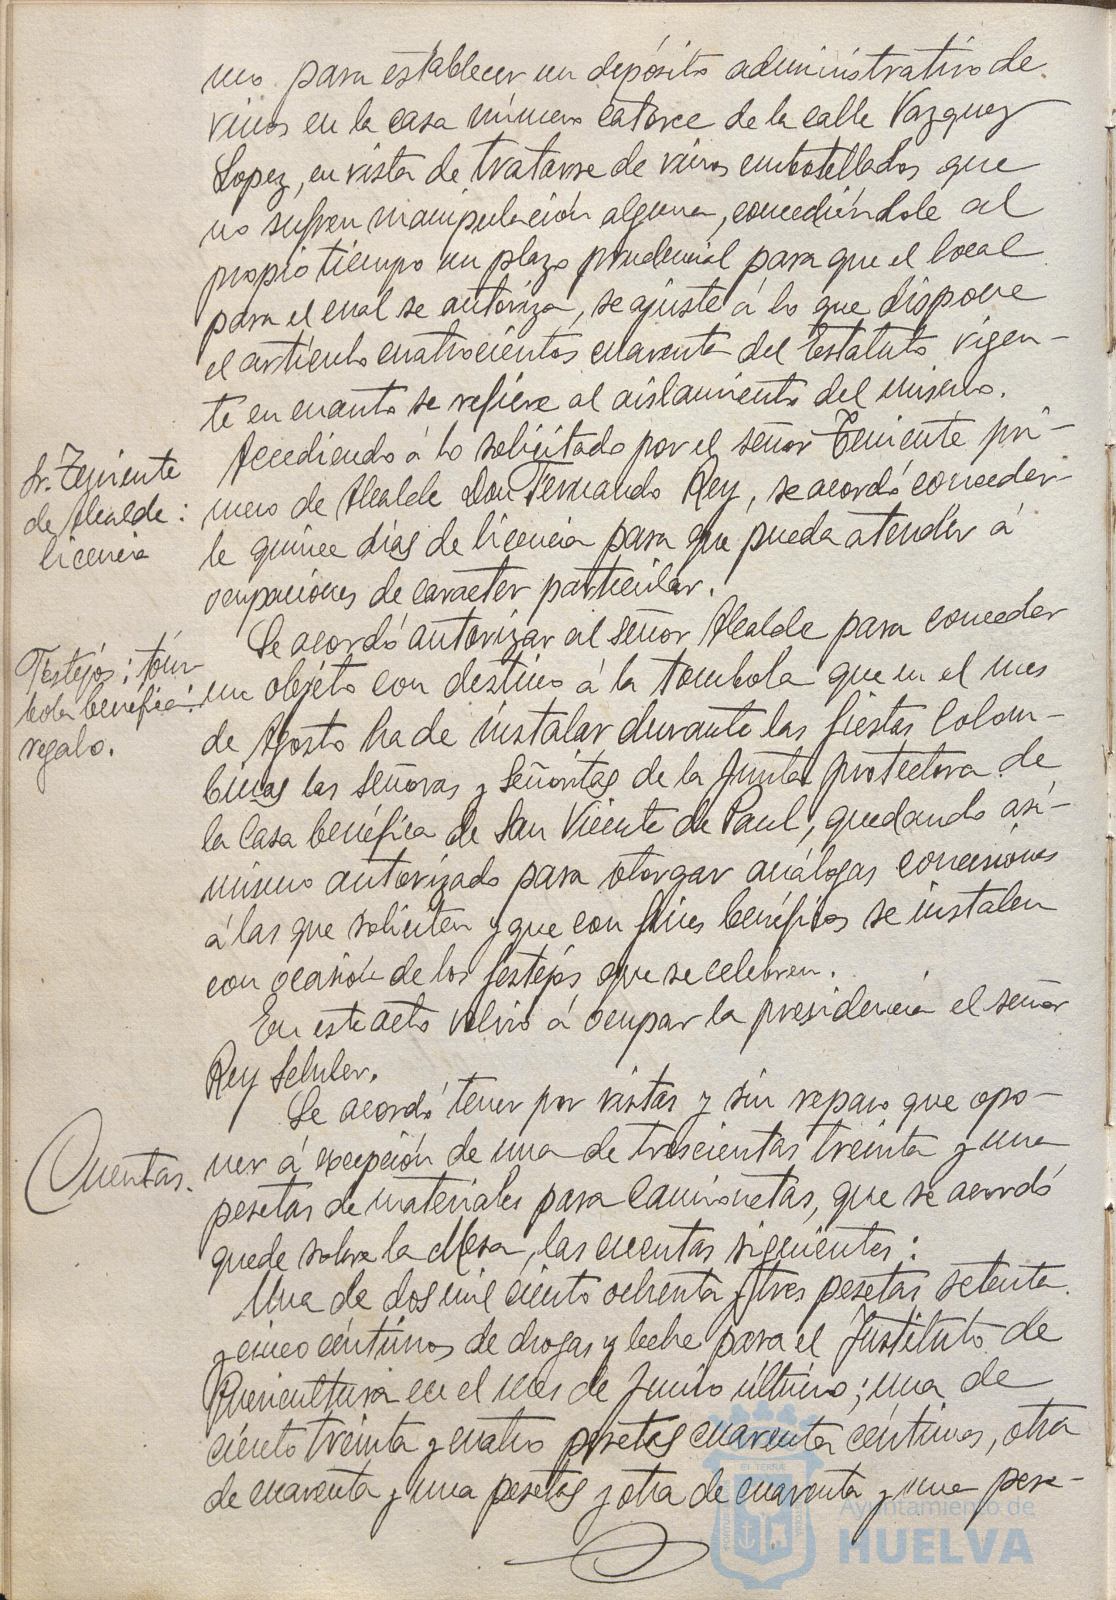 mo para establecer un depósito administrativo de
vinos en la casa número catorce de la calle Vazquez
Lopez, en vista de tratarse de vinos embotellados que
no sufren manipulación alguna, concediéndole al
propio tiempo un plazo prudencial para que el local
para el cual se autoriza, se ajuste á lo que dispone
el artículo cuatrocientos cuarenta del Estatuto vigen-
te en cuanto se refiere al aislamiento del mismo.
Sr. Teniente
de Alcalde:
licencia
Accediendo á lo solicitado por el señor Teniente pri-
mero de Alcalde Don Fernando Rey, se acordó conceder-
le quince días de licencia para que pueda atender á
ocupaciones de caracter particular.
Festejos: tóm-
bola benéfica:
regalo.
Se acordó autorizar al señor Alcalde para conceder
un objeto con destino á la tombola que en el mes
de Agosto ha de instalar durante las fiestas Colom-
binas las señoras y señoritas de la Junta protectora de
la Casa benéfica de San Vicente de Paul, quedando asi-
mismo autorizado para otorgar análogas concesiones
á las que soliciten y que con fines benéficos se instalen
con ocasión de los festejos que se celebren.
En este acto volvió á ocupar la presidencia el señor
Rey Schuler.
Cuentas.
Se acordó tener por vistas y sin reparo que opo-
ner á excepción de una de trescientas treinta y una
pesetas de materiales para camionetas, que se acordó
quede sobre la Mesa, las cuentas siguientes:
Una de dos mil ciento ochenta y tres pesetas setenta
y cinco céntimos de drogas y leche para el Instituto de
Puericultura en el mes de Junio último; una de
ciento treinta y cuatro pesetas cuarenta céntimos, otra
de cuarenta y una pesetas y otra de cuarenta y una pese-
Ayuntamiento de
HUELVA